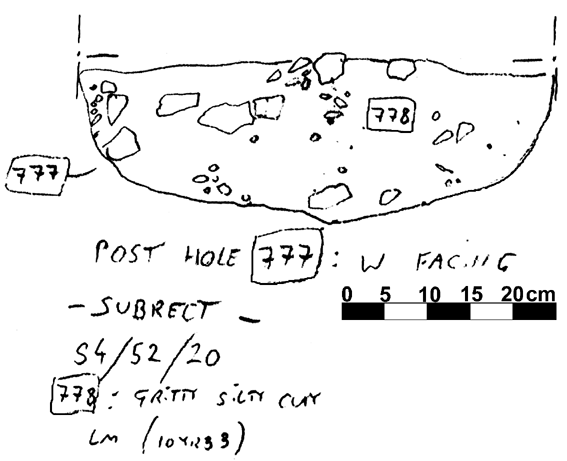 778
777
POST HOLE 777 : W FACING
0 5 10 15 20cm
- SUBRECT -
S4/52/20
778 : GRITTY SILTY CLAY
LM (10YR33)